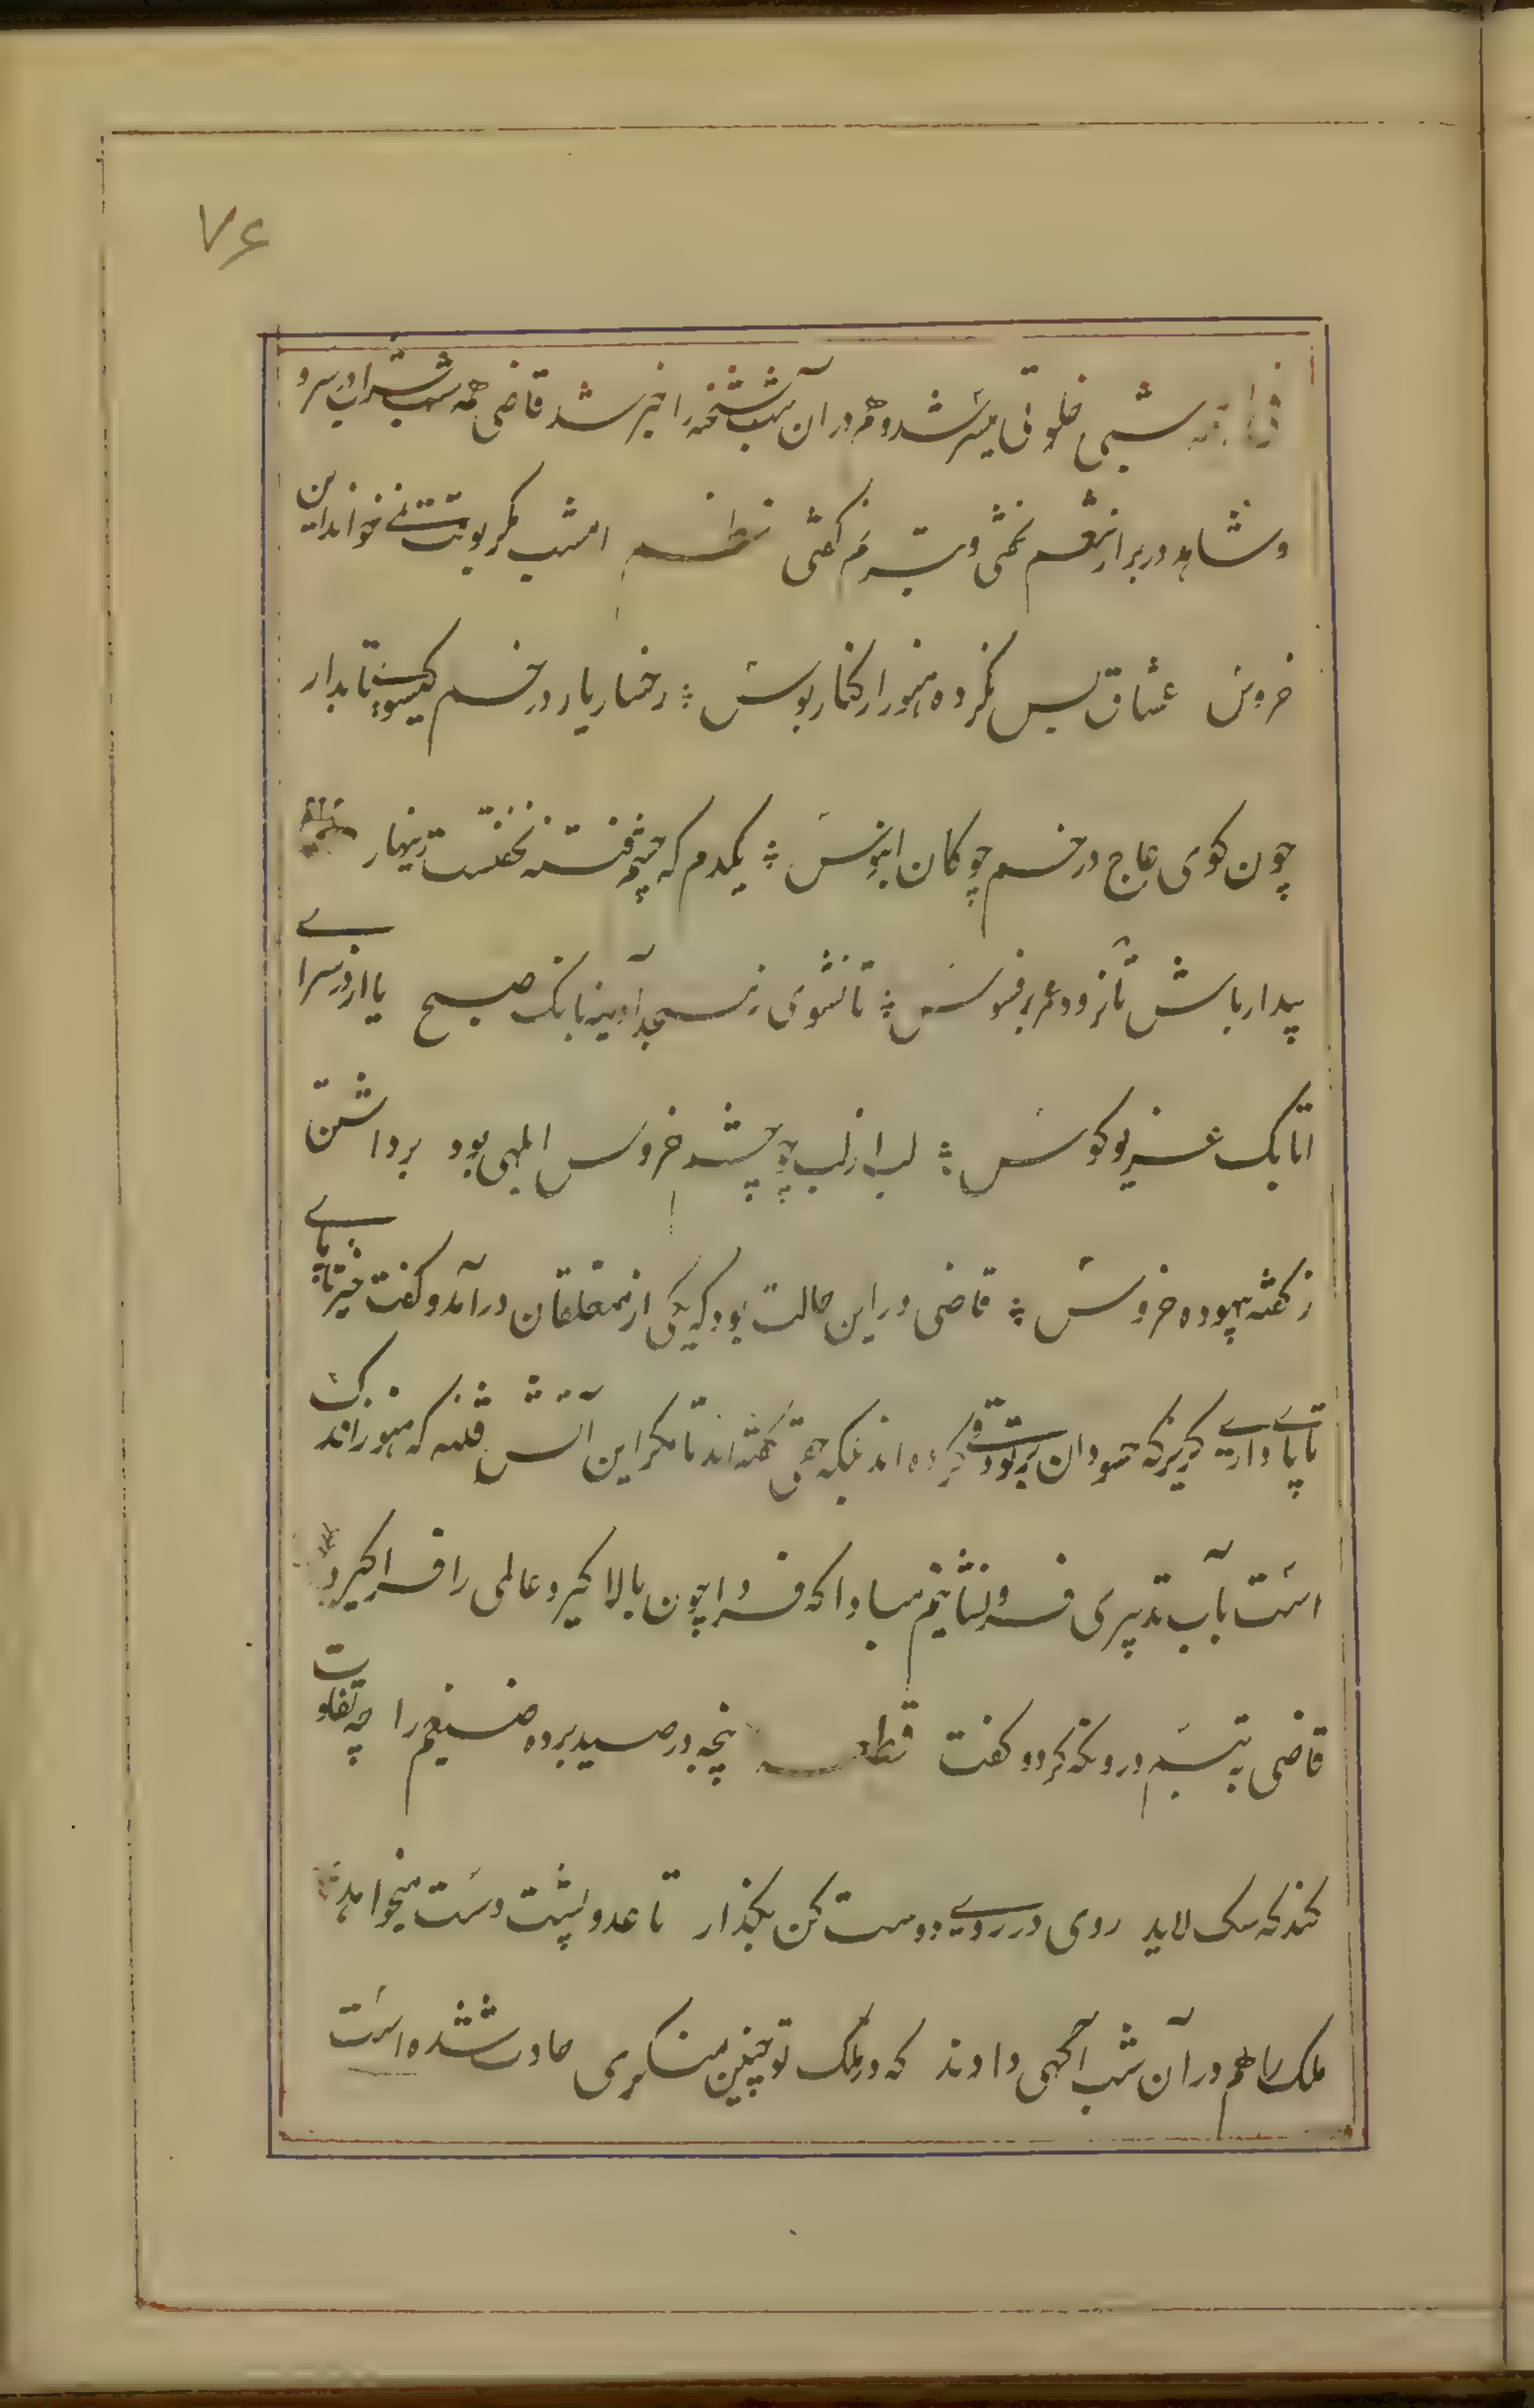 ۷۶
فی الجمله شبی خلوتی میسر شد و هم در آن شب شحنه را خبر شد قاضی همه شب شراب در سر و
و شاهد در بر از تنعم نخفتی و بترنم گفتی نظم امشب مگر بوقت نمی خواند این
خروس عشاق بس نکرده هنوز از کنار بوس ؞ رخسار یار در خم گیسوی تابدار
چون کوی عاج در خم چوکان ابنوس ؞ یکدم که چشم فتنه نخفتست زینهار
بیدار باش تا نرود عمر بر فسوس ؞ تا نشوی ز مسجد آدینه بانک صبح یا از در سرای
اتابک غریو کوس ؞ لب از لب چو چشم خروس ابلهی بود برداشتن
ز کفته بیهوده خروس ؞ قاضی در این حالت بود که یکی از متعلقان در آمد و کفت خیز تا پای
تا پای داری کریز که حسودان بر تو دقی کرده اند بلکه حقی کفته اند تا مکر این آتش فتنه که هنوز اندک
است بآب تدبیری فرو نشانیم مبادا که فردا چون بالا کیرد عالمی را فرا کیرد
قاضی به تبسم درو نکه کرد و کفت قطعه پنجه در صید برده ضیغم را چه تفاوت
کند که سک لاید روی در روی دوست کن بکذار تا عدو پشت دست میخواید
ملک را هم در آن شب آکهی دادند که در ملک تو چنین منکری حادث شده است